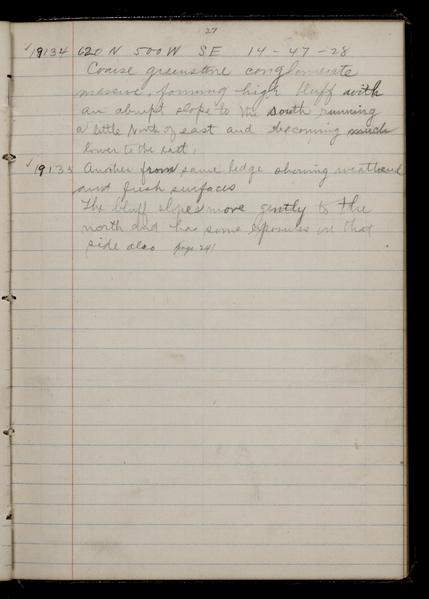 27
✓19134 620 N 500 W SE 14-47-28
Coarse greenstone conglomerate
massive, forming high bluff with
an abrupt slope to the south running
a little North of east and becoming much
lower to the east.
✓19135 Another from same ledge showing weathered
and fresh surfaces
The bluff slopes more gently to the
north and has some exposures on that
side also (page 24)